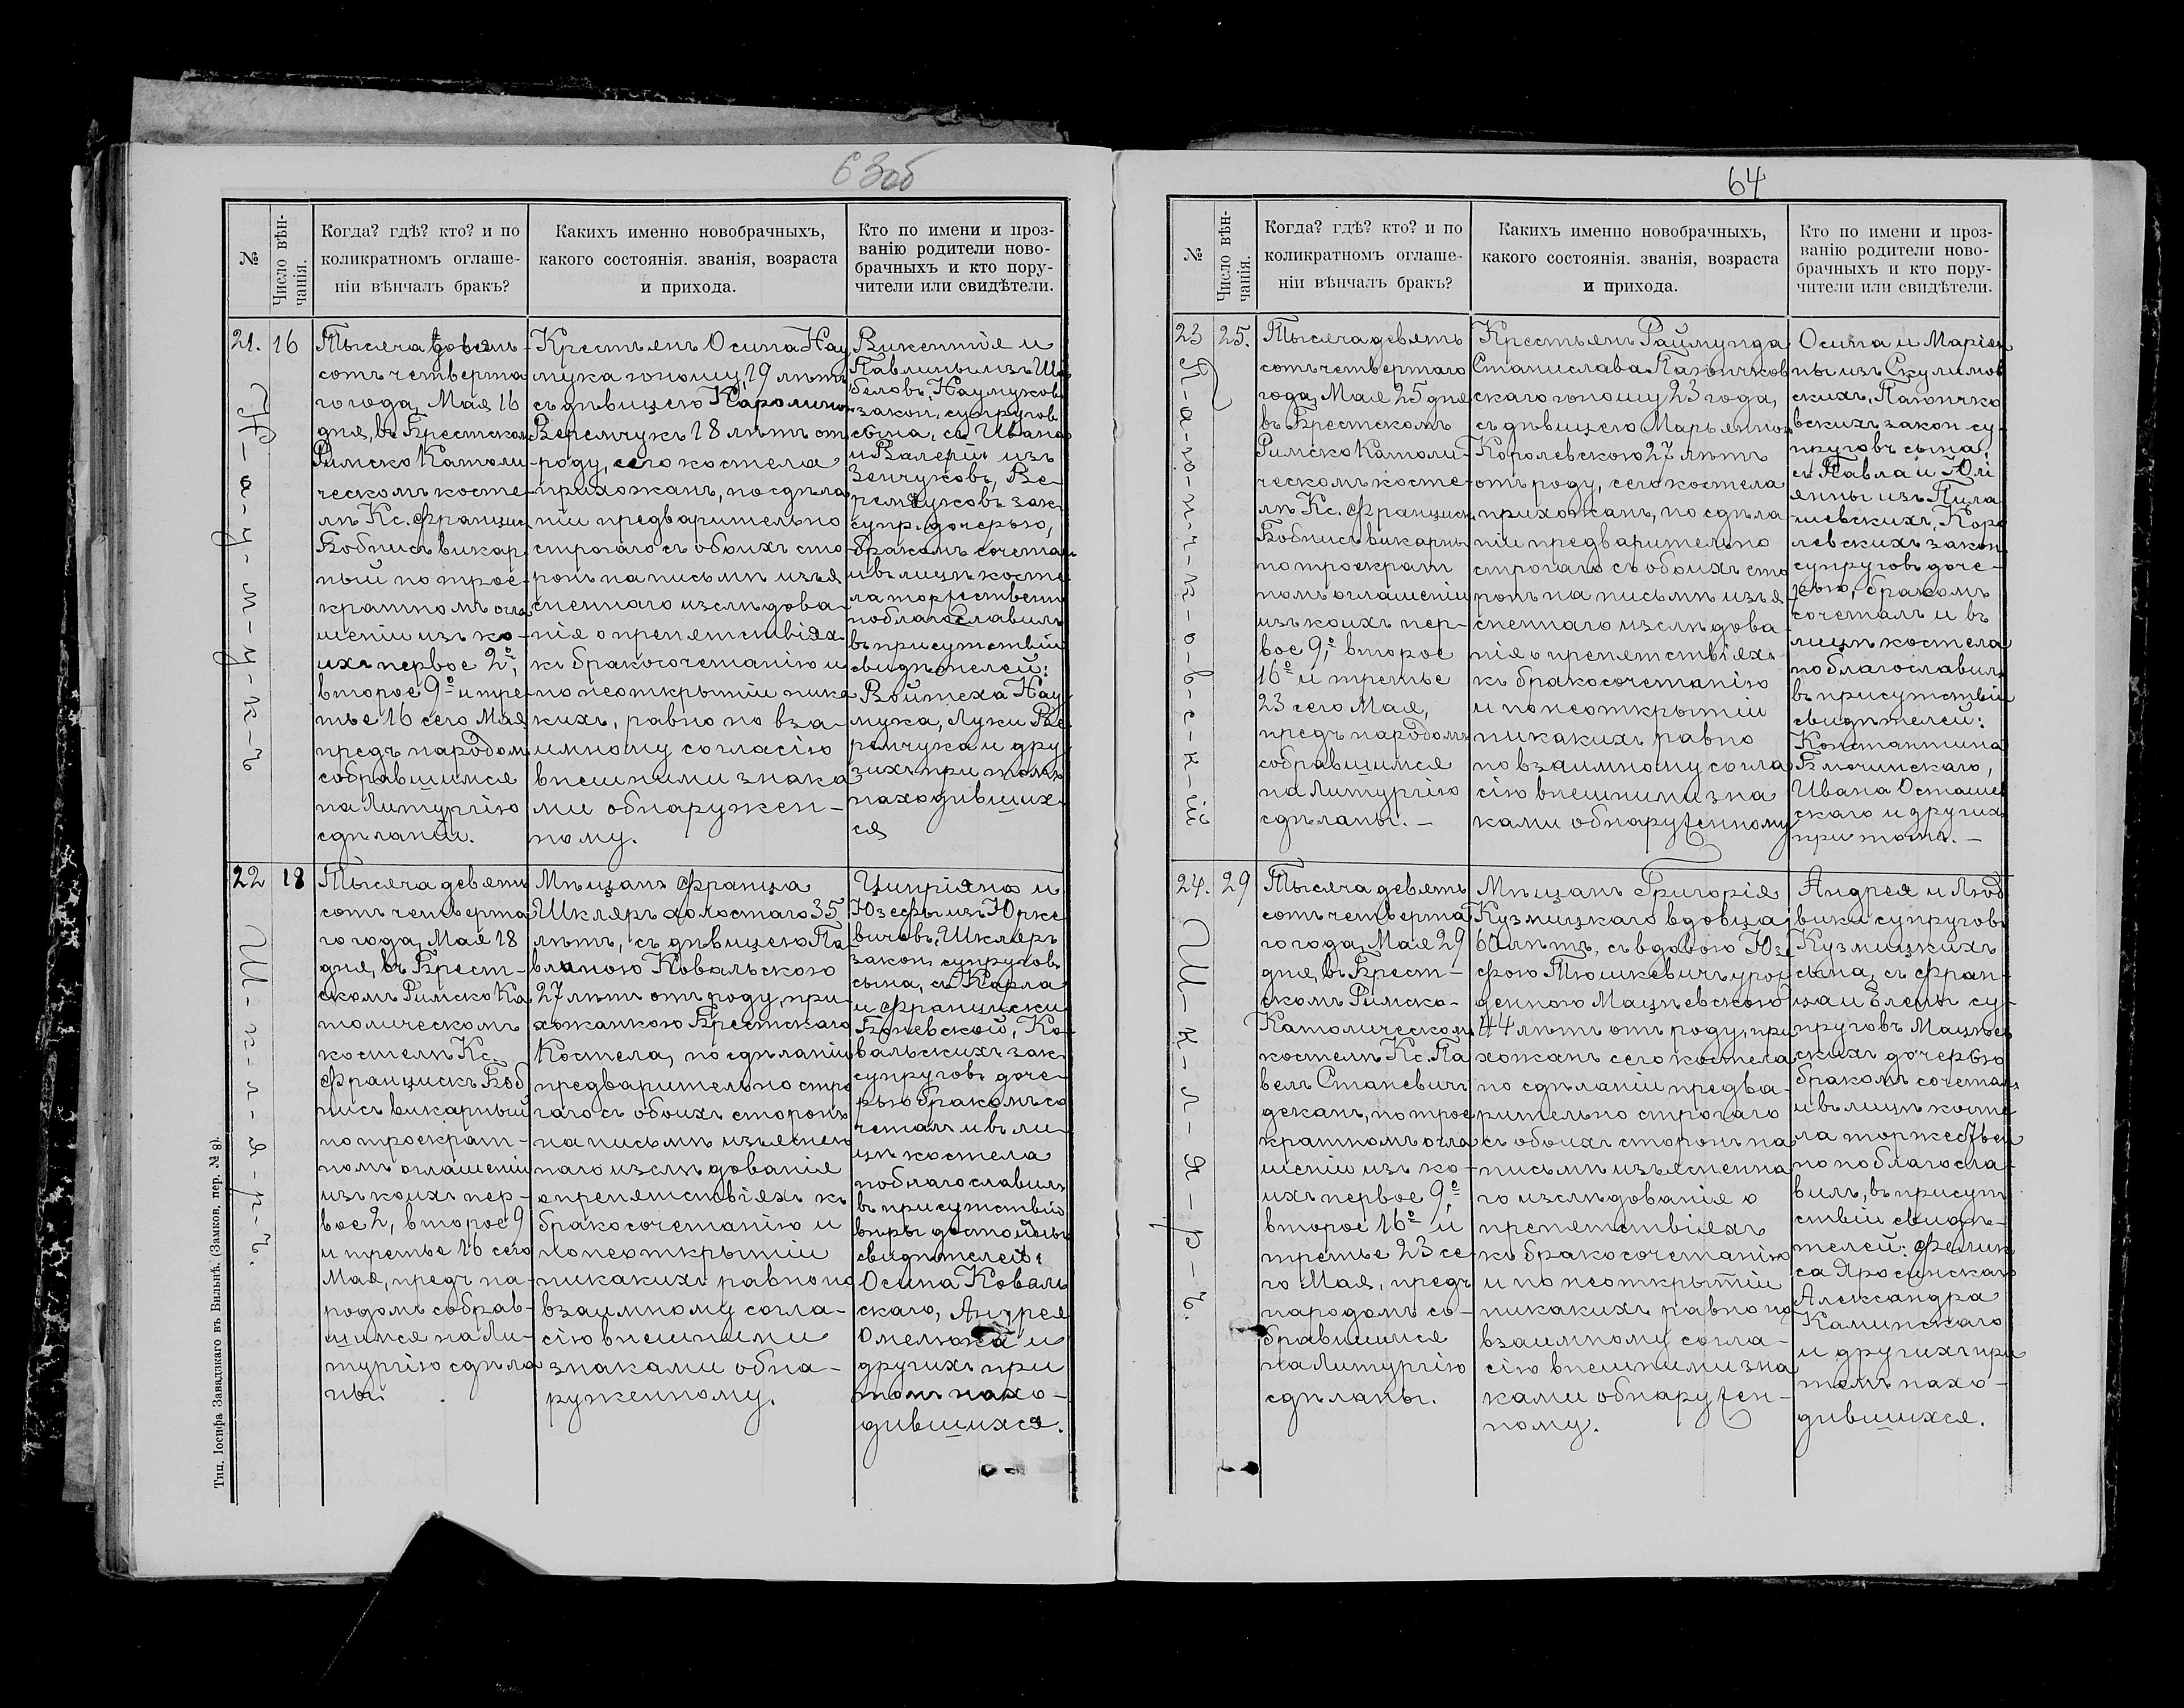 63об
№
Число вѣн-
чанія.
Когда? гдѣ? кто? и по
коликратномъ оглаше-
ніи вѣнчалъ бракъ?
Какихъ именно новобрачныхъ,
какого состоянія. званія, возраста
и прихода.
Кто по имени и проз-
ванію родители ново-
брачныхъ и кто пору-
чители или свидѣтели.
21.
16
Н-а-у-м-у-к-ъ
Тысяча девять-
сотъ четверта
го года, Мая 16
дня, въ Брестском
Римско Католи
ческомъ косте-
лѣ Кс. Францис
Бобнисъ викар
ный по трое-
кратномъ огла
шеніи изъ ко-
ихъ первое 2º,
второе 9º и тре-
тье 16 сего Мая
предъ народом
собравшимся
на Литургію
сдѣланій.
Крестьянъ Осипа Нау
мука юношу, 19 лѣтъ
съ дѣвицею Каролиною
Веремчукъ 18 лѣтъ от
роду, сего костела
прихожанъ, по сдѣла
ніи предварительно
строгаго съ обоихъ сто
ронъ на письмѣ изъя
сненнаго изслѣдова-
нія о препятствіях
къ бракосочетанію и
по неоткрытіи ника
кихъ, равно по вза-
имному согласію
внешними знака
ми обнаружен-
ному.
Викентія и
Павлины изъ Ша
беловъ, Наумуков
закон. супругов
сына, съ Ивана
и Валеріи изъ
Зенчуковъ, Ве-
ремчуковъ зак
супр. дочерью,
бракомъ сочетал
и въ лицѣ косте
ла торжественн
поблагославилъ
въ присутствіи
свидѣтелей:
Войтеха Нау
мука, Луки Ве
ремчука и дру
гихъ при томъ
находивших-
ся
22
18
Ш-к-л-я-р-ъ.
Тысяча девять
сотъ четверта
го года, Мая 18
дня, въ Брест-
скомъ Римско Ка
толическомъ
костелѣ Кс.
Францискъ Боб
нисъ викарный
по троекрат-
номъ оглашеніи
изъ коихъ пер-
вое 2, второе 9
и третье 16 сего
Мая, предъ на-
родомъ собрав-
шимся на Ли-
тургію сдѣла
ны.
Мѣщанъ Франца
Шкляръ холостаго 35
лѣтъ, съ дѣвицею Па
вланою Ковальскою
27 лѣтъ отъ роду, при-
хожанкою Брестскаго
Костела, по сдѣланіи
предварительно стро
гаго съ обоихъ сторонъ
на письмѣ изъяснен
наго изслѣдованія
о препятствіяхъ къ
бракосочетанію и
по неоткрытіи
никакихъ равно по
взаимному согла-
сію внешними
знаками обна-
руженному.
Ципріяна и
Юзефы изъ Юрке
вичовъ, Шкляръ
закон. супруговъ
сына, съ Карла
и Францишки
Боневской, Ко-
вальскихъ зак.
супруговъ доче-
рью бракомъ со
четалъ и въ ли-
цѣ костела
поблагославилъ
въ присутствіи
вѣры достойныхъ
свидѣтелей:
Осипа Коваль
скаго, Андрея
Омелюка и
другихъ при
томъ нахо-
дившихся.
Тип. Іосифа Завадзкаго въ Вильнѣ. (Замков. пер. № 8).
64
№
Число вѣн-
чанія.
Когда? гдѣ? кто? и по
коликратномъ оглаше-
ніи вѣнчалъ бракъ?
Какихъ именно новобрачныхъ,
какого состоянія. званія, возраста
и прихода.
Кто по имени и проз-
ванію родители ново-
брачныхъ и кто пору-
чители или свидѣтели.
23
25.
П-а-ю-н-ч-к-о-в-с-к-ій
Тысяча девять
сотъ четвертаго
года, Мая 25 дня
въ Брестскомъ
Римско Католи-
ческомъ косте-
лѣ Кс. Францискъ
Бобнисъ викарны
по троекрат
номъ оглашеніи
изъ коихъ пер-
вое 9,º второе
16º и третье
23 сего Мая,
предъ народомъ
собравшимся
на Литургію
сдѣланы. -
Крестьянъ Раймунда
Станислава Паюнчков
скаго юношу 23 года,
съ дѣвицею Марьянною
Королевскою 27 лѣтъ
отъ роду, сего костела
прихожанъ, по сдѣла
ніи предварительно
строгаго съ обоихъ сто
ронъ на письмѣ изъя
сненнаго изслѣдова-
нія о препятствіяхъ
къ бракосочетанію
и по неоткрытіи
никакихъ равно
по взаимному согла
сію внешними зна
ками обнаруженному
Осипа и Маріан
ны изъ Скулимов
скихъ, Паюнчко
вскихъ закон. су-
пруговъ сына,
съ Павла и Юлі
янны изъ Пила
шевскихъ, Коро
левскихъ закон.
супруговъ доче-
рью, бракомъ
сочеталъ и въ
лицѣ костела
поблагославилъ
въ присутствіи
свидѣтелей:
Константина
Блочинскаго,
Ивана Осташев
скаго и других
при томъ. -
24.
29
Ш-к-л-я-р-ъ.
Тысяча девять
сотъ четверта
го года, Мая 29
дня, въ Брест-
скомъ Римско-
Католическом
костелѣ Кс. Па
велъ Станевичъ
деканъ, по трое
кратномъ огла
шеніи изъ ко-
ихъ первое 9º
второе 16º и
третье 23 се-
го Мая, предъ
народомъ со-
бравшимся
на Литургію
сдѣланы.
Мѣщанъ Григорія
Кузмицкаго вдовца
60 лѣтъ, съ вдовою Юзе
фою Тюшкевичъ урож
денною Мацѣевскою
44 лѣтъ отъ роду, при
хожанъ сего костела
по сдѣланіи предва-
рительно строгаго
съ обоихъ сторонъ на
письмѣ изъясненна
го изслѣдованія о
препятствіяхъ
къ бракосочетанію
и по неоткрытіи
никакихъ равно по
взаимному согла-
сію внешними зна
ками обнаружен-
ному.
Андрея и Люд
вики супруговъ
Кузмицкихъ
сына, съ Фран-
ца и Елены су-
пруговъ Мацѣев
скихъ дочерью
бракомъ сочеталъ
и въ лицѣ косте
ла торжествен
но поблагосла-
вилъ, въ присут
ствіи свидѣ-
телей: Фелик
са Яросинскаго
Александра
Каминскаго
и другихъ при
томъ нахо-
дившихся.